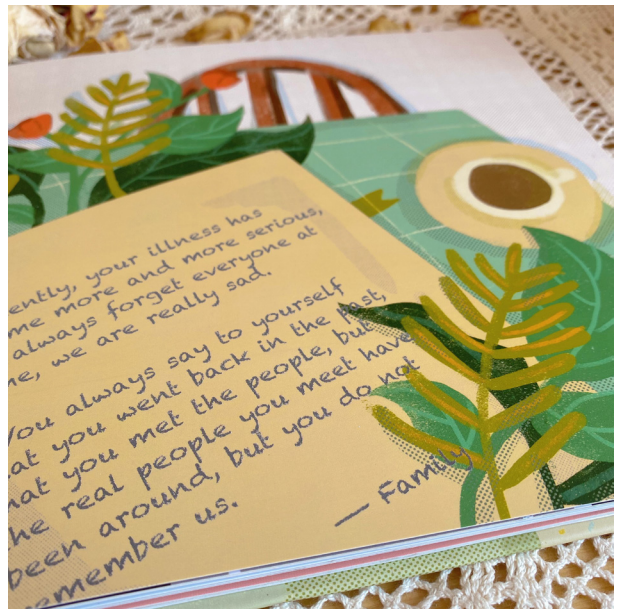 ently, your illness has
me more and more serious,
always forget everyone at
me, we are really sad.
You always say to yourself
at you went back in the past,
hat you met the people, but
he real people you meet have
been around, but you do not
emember us.
— Family